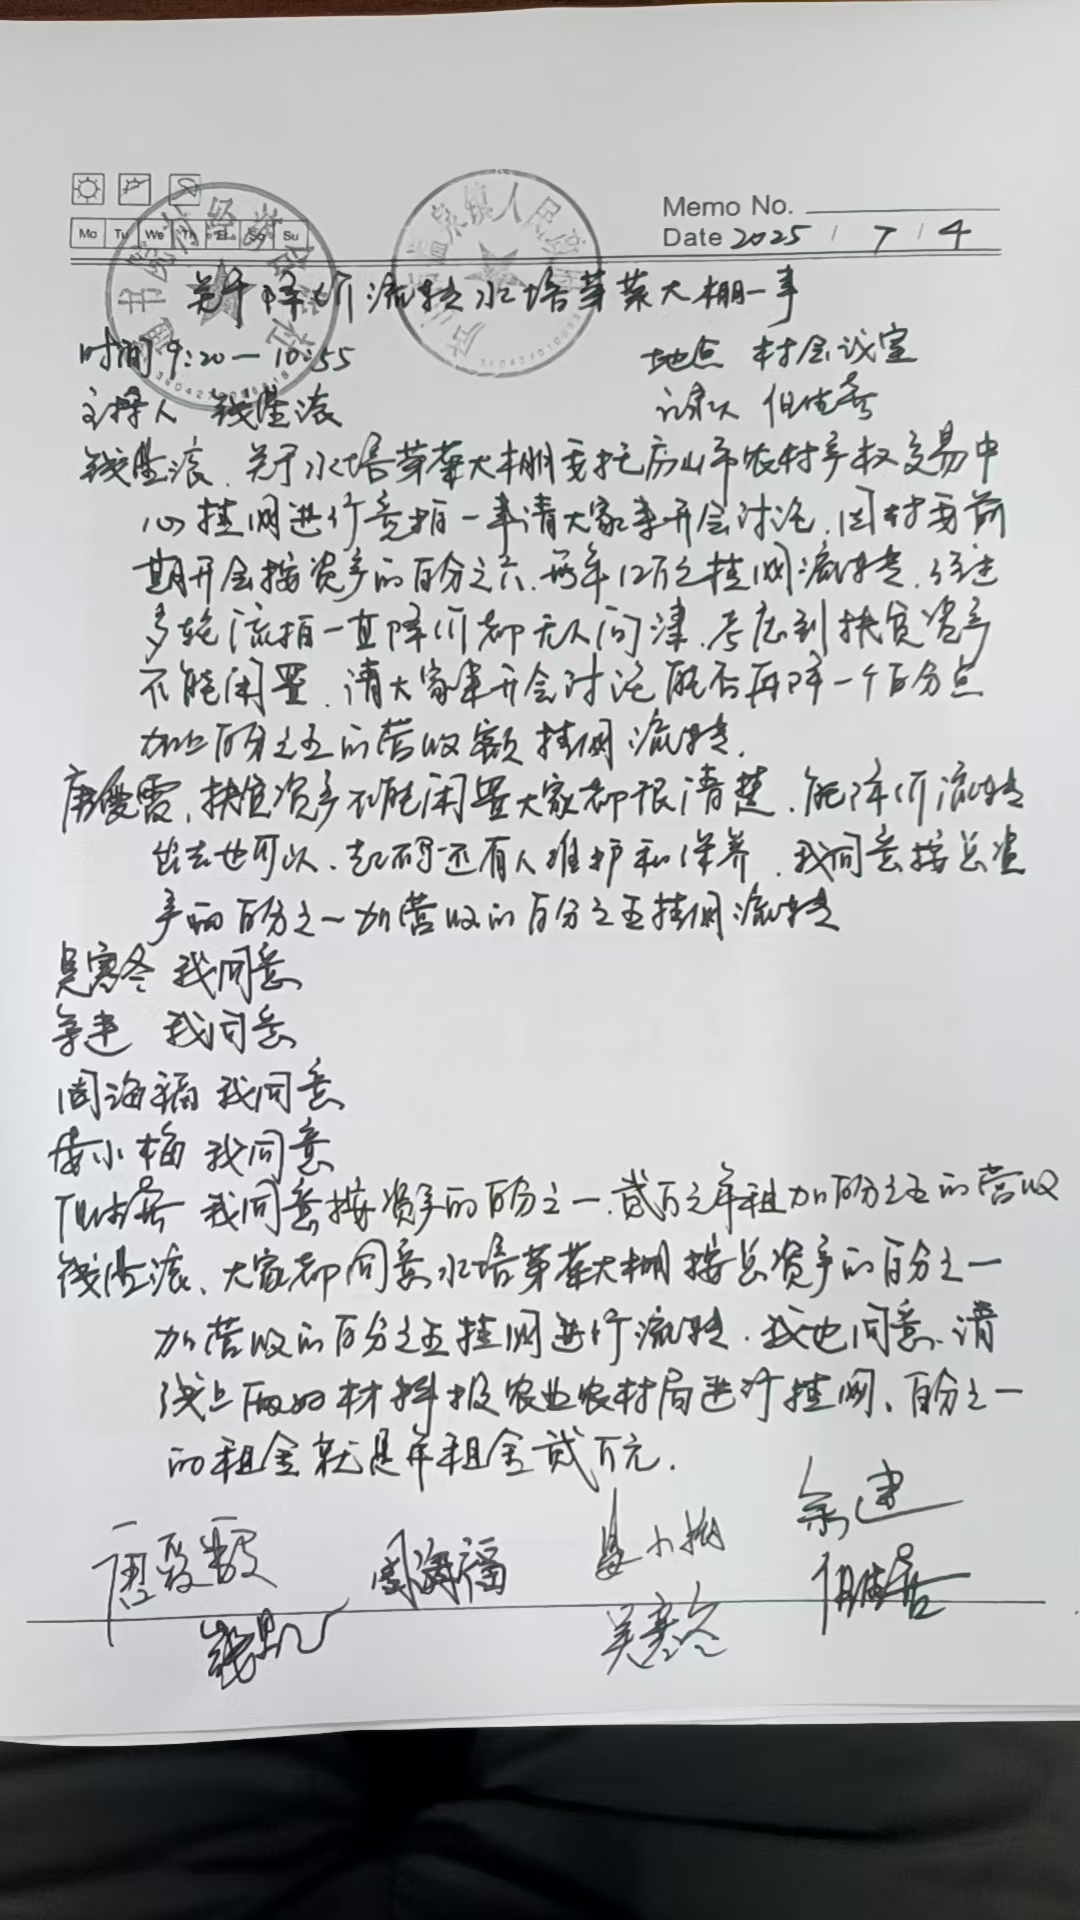 Memo No.
Mo Tu We Th Fr Sa Su
Date 2025 / 7 / 4
关于降价流转水培芽菜大棚一事
时间 9:20—10:55 地点 村会议室
主持人 钱 记录人 但
关于水培芽菜大棚委托庐山市农村产权交易中
心挂网进行竞拍一事请大家来开会讨论,因村委前
期开会按资产的百分之六,每年12万元挂网流转,经过
多轮流拍一直降价都无人问津,考虑到扶贫资产
不能闲置,请大家来开会讨论能否再降一个百分点
加上百分之五的营收额挂网流转.
扶贫资产不能闲置大家都很清楚,能降价流转
出去也可以、起码还有人维护和保养,我同意按总资
产的百分之一加营收的百分之五挂网流转
吴寒冬 我同意
余建 我同意
周海福 我同意
小梅 我同意
我同意按资产的百分之一,贰万元年租加百分之五的营收
大家都同意水培芽菜大棚按总资产的百分之一
加营收的百分之五挂网进行流转,我也同意,请
线上的材料报农业农村局进行挂网、百分之一
的租金就是年租金贰万元.
余建
周海福 小梅
吴寒冬